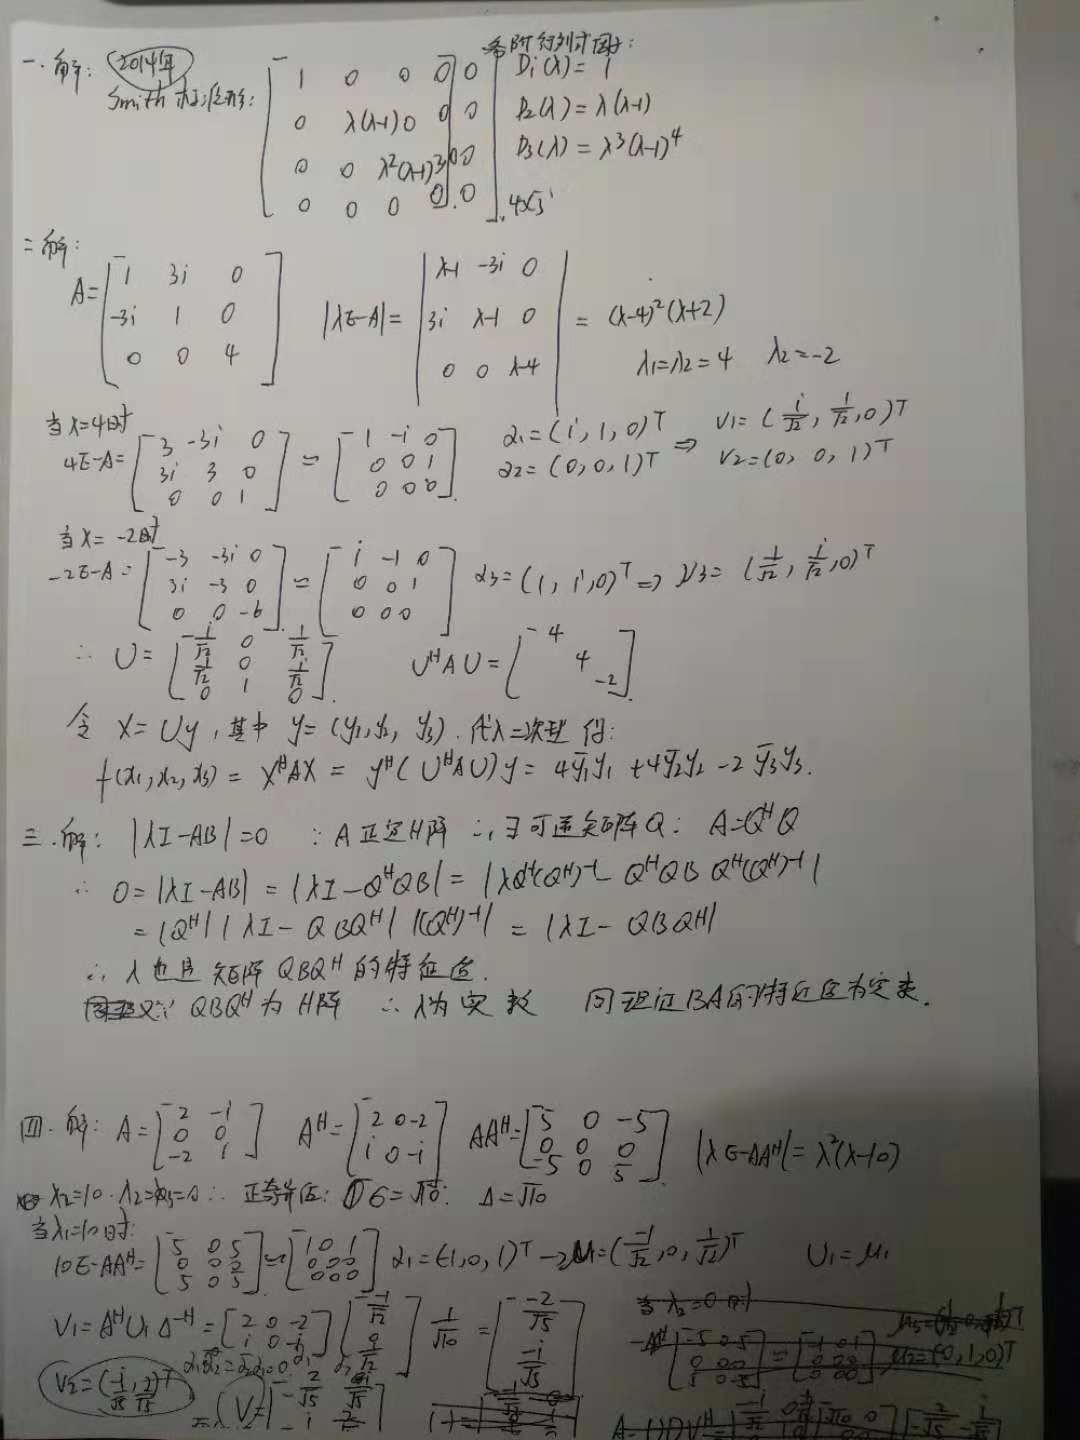 一.解: 2014年 各阶行列式因子:
Smith标准形: [1 0 0 0 0
0 λ(λ-1) 0 0 0
0 0 λ²(λ-1)³ 0 0
0 0 0 0 0] 4×5
D₁(λ)=1
D₂(λ)=λ(λ-1)
D₃(λ)=λ³(λ-1)⁴
二解:
A=[1 3i 0
-3i 1 0
0 0 4] |λE-A|=|λ-1 -3i 0
3i λ-1 0
0 0 λ-4| =(λ-4)²(λ+2)
λ₁=λ₂=4 λ₂=-2
当λ=4时
4E-A=[3 -3i 0
3i 3 0
0 0 1] ≃ [1 -i 0
0 0 1
0 0 0] α₁=(i,1,0)ᵀ α₂=(0,0,1)ᵀ ⇒ V₁=(i/√2, 1/√2, 0)ᵀ V₂=(0,0,1)ᵀ
当λ=-2时
-2E-A=[-3 -3i 0
3i -3 0
0 0 -6] ≃ [i -1 0
0 0 1
0 0 0] α₃=(1,i,0)ᵀ ⇒ V₃=(1/√2, i/√2, 0)ᵀ
∴ U=[i/√2 0 1/√2
1/√2 0 i/√2
0 1 0] UᴴAU=[4
4
-2]
令 X=Uy,其中 y=(y₁,y₂,y₃).代入二次型得:
f(x₁,x₂,x₃)=XᴴAX=yᴴ(UᴴAU)y=4ȳ₁y₁+4ȳ₂y₂-2ȳ₃y₃.
三.解: |λI-AB|=0 ∵A正定H阵 ∴∃可逆矩阵Q: A=QᴴQ
∴ 0=|λI-AB|=|λI-QᴴQB|=|λQᴴ(Qᴴ)⁻¹-QᴴQBQᴴ(Qᴴ)⁻¹|
=|Qᴴ||λI-QBQᴴ||(Qᴴ)⁻¹|=|λI-QBQᴴ|
∴λ也是矩阵QBQᴴ的特征值.
又∵QBQᴴ为H阵 ∴λ为实数 同理证BA的特征值为实数.
四.解: A=[2 -i
0 0
-2 i] Aᴴ=[2 0 -2
i 0 -i] AAᴴ=[5 0 -5
0 0 0
-5 0 5] |λE-AAᴴ|=λ²(λ-10)
λ₂=10.λ₂=λ₃=0∴正奇异值: σ=√10. Δ=√10
当λ₁=10时:
10E-AAᴴ=[5 0 5
0 0 2
5 0 5] ≃ [1 0 1
0 0 0
0 0 0] α₁=(-1,0,1)ᵀ→μ₁=(-1/√2,0,1/√2)ᵀ U₁=μ₁
V₁=AᴴU₁Δ⁻ᴴ=[2 0 -2
i 0 -i] [-1/√2
0
1/√2] 1/√10 = [-2/√5
-i/√5]
当λ₂=0时
V₂=(-i/√5, 2/√5)ᵀ